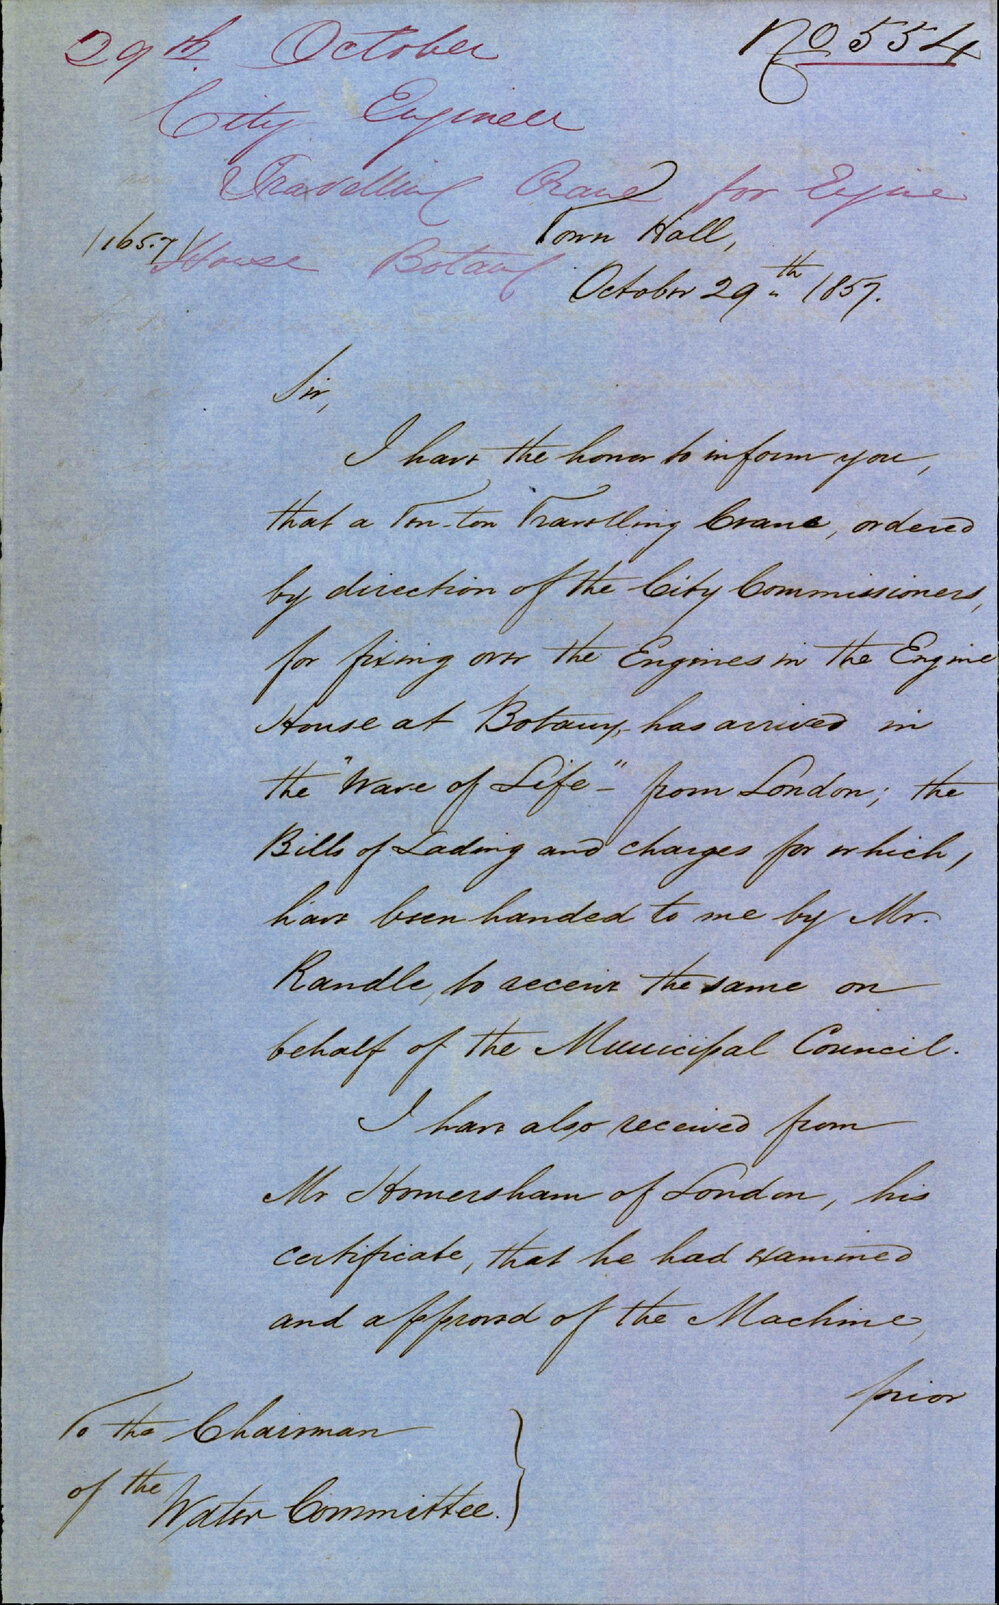 29th October
No 554
City Engineer
Travelling Crane for Engine
House Botany
/1657/
Town Hall,
October 29th 1857.
Sir,
I have the honor to inform you,
that a Ten-ton Travelling Crane, ordered
by direction of the City Commissioners,
for fixing over the Engines in the Engine
House at Botany, has arrived in
the "Wave of Life" - from London; the
Bills of Lading and charges for which,
have been handed to me by Mr.
Randle, to receive the same on
behalf of the Municipal Council.
I have also received from
Mr Homersham of London, his
certificate, that he had examined
and approved of the Machine,
prior
To the Chairman
of the
Water Committee.